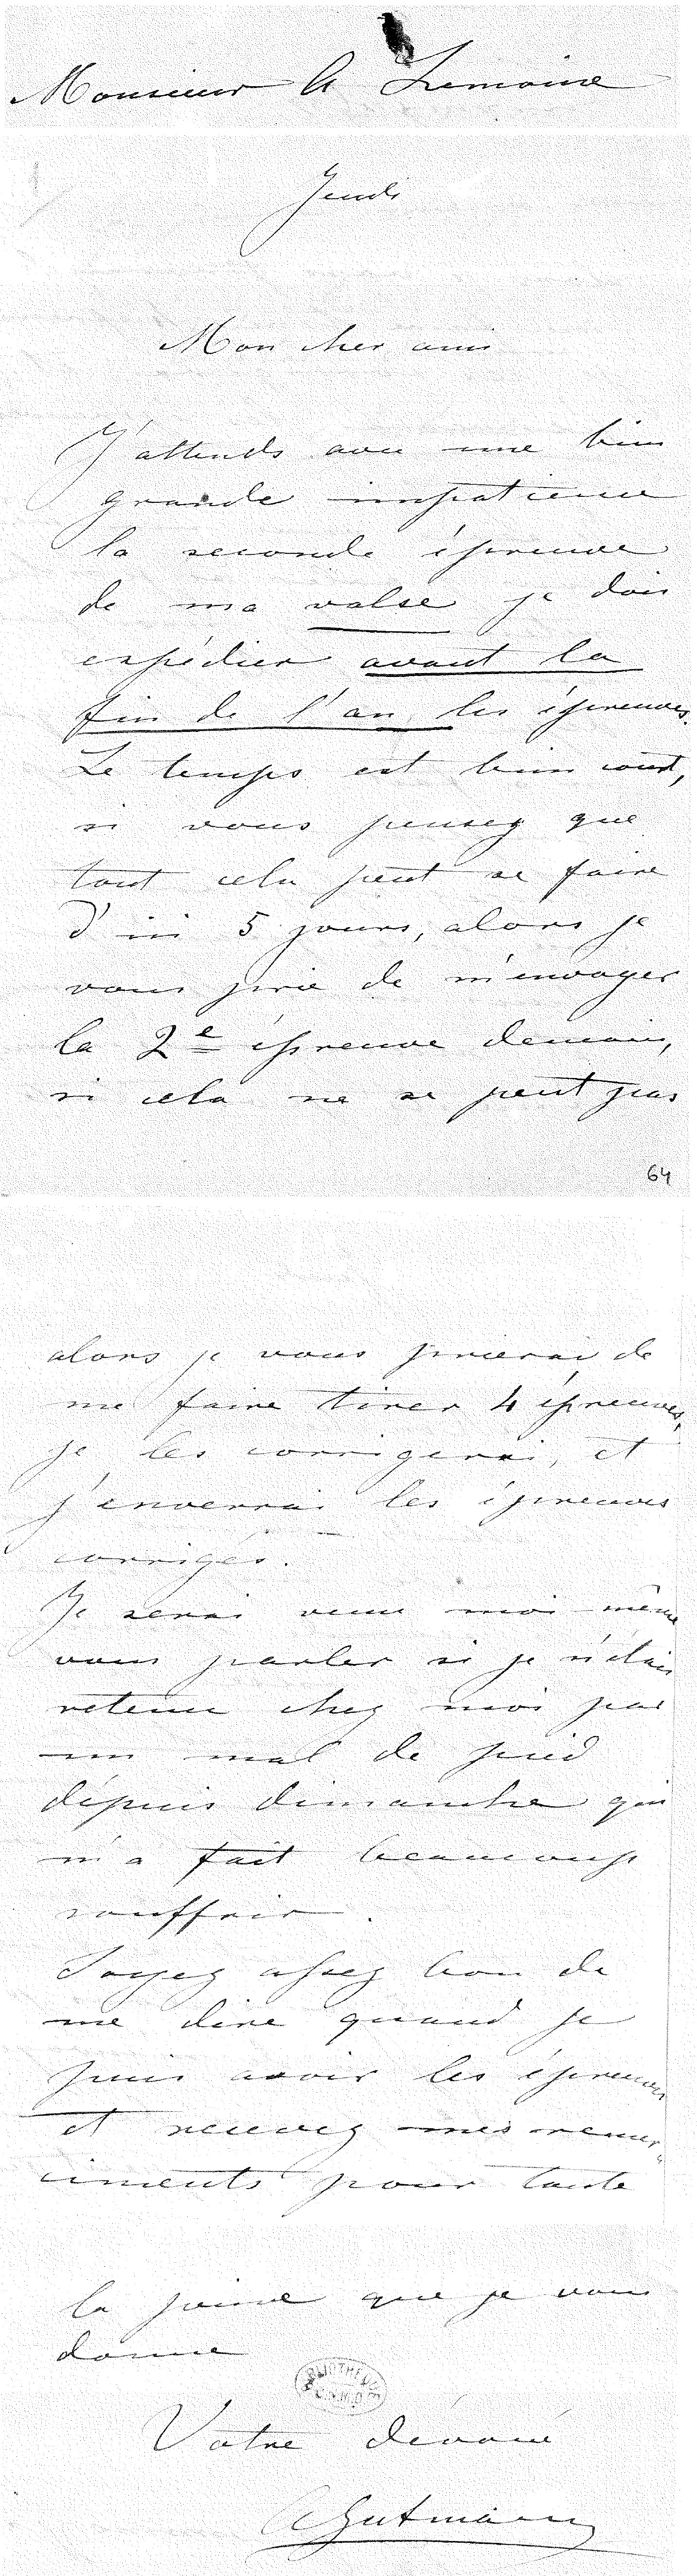 Monsieur A Lemoine
Jeudi
Mon cher ami
J'attends avec une bien
grande impatience
la seconde épreuve
de ma valse je dois
expédier avant la
fin de l'an les épreuves.
Le temps est bien court,
si vous pensez que
tout cela peut se faire
d'ici 5 jours, alors je
vous prie de m'envoyer
la 2e épreuve demain,
si cela ne se peut pas
64
alors je vous prierai de
me faire tirer 4 épreuves,
je les corrigerai, et
j'enverrai les épreuves
corrigés.
Je serai venu moi même
vous parler si je n'étais
retenu chez moi par
un mal de pied
dépuis dimanche qui
m'a fait beaucoup
souffrir.
Soyez assez bon de
me dire quand je
puis avoir les épreuves
et recevez mes remer-
ciments pour toute
la peine que je vous
donne
Votre dévoué
AGutmann